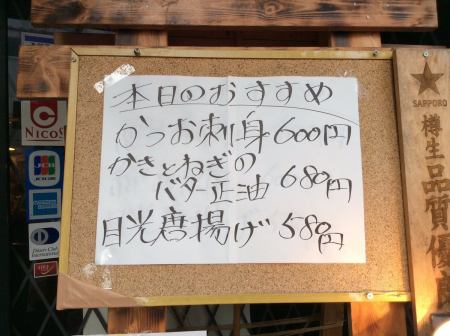 本日のおすすめ
かつお刺身 600円
かきとねぎの
バター正油 680円
日光唐揚げ 580円
NICOS
JCB
Diners Club
International
SAPPORO
樽生品質優良